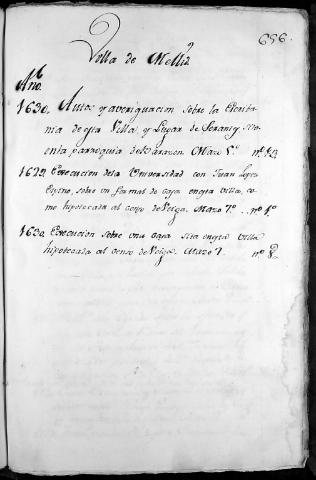 656.
Villa de Mellid
Año.
1630. Autos y averiguacion sobre la Escriba-
nia de esta Villa, y Lugar de Serantes
parroquia de Mazo 5.º nº
1622. Execucion de la Universidad con Juan Lopez
sobre un formal de casa en esta villa, co-
mo hipotecada al censo de Veiga. Mazo 7.º .. nº 1º
1630. Execucion sobre una casa sita en esta Villa
hipotecada al censo de Veiga. Mazo 7. nº 8º